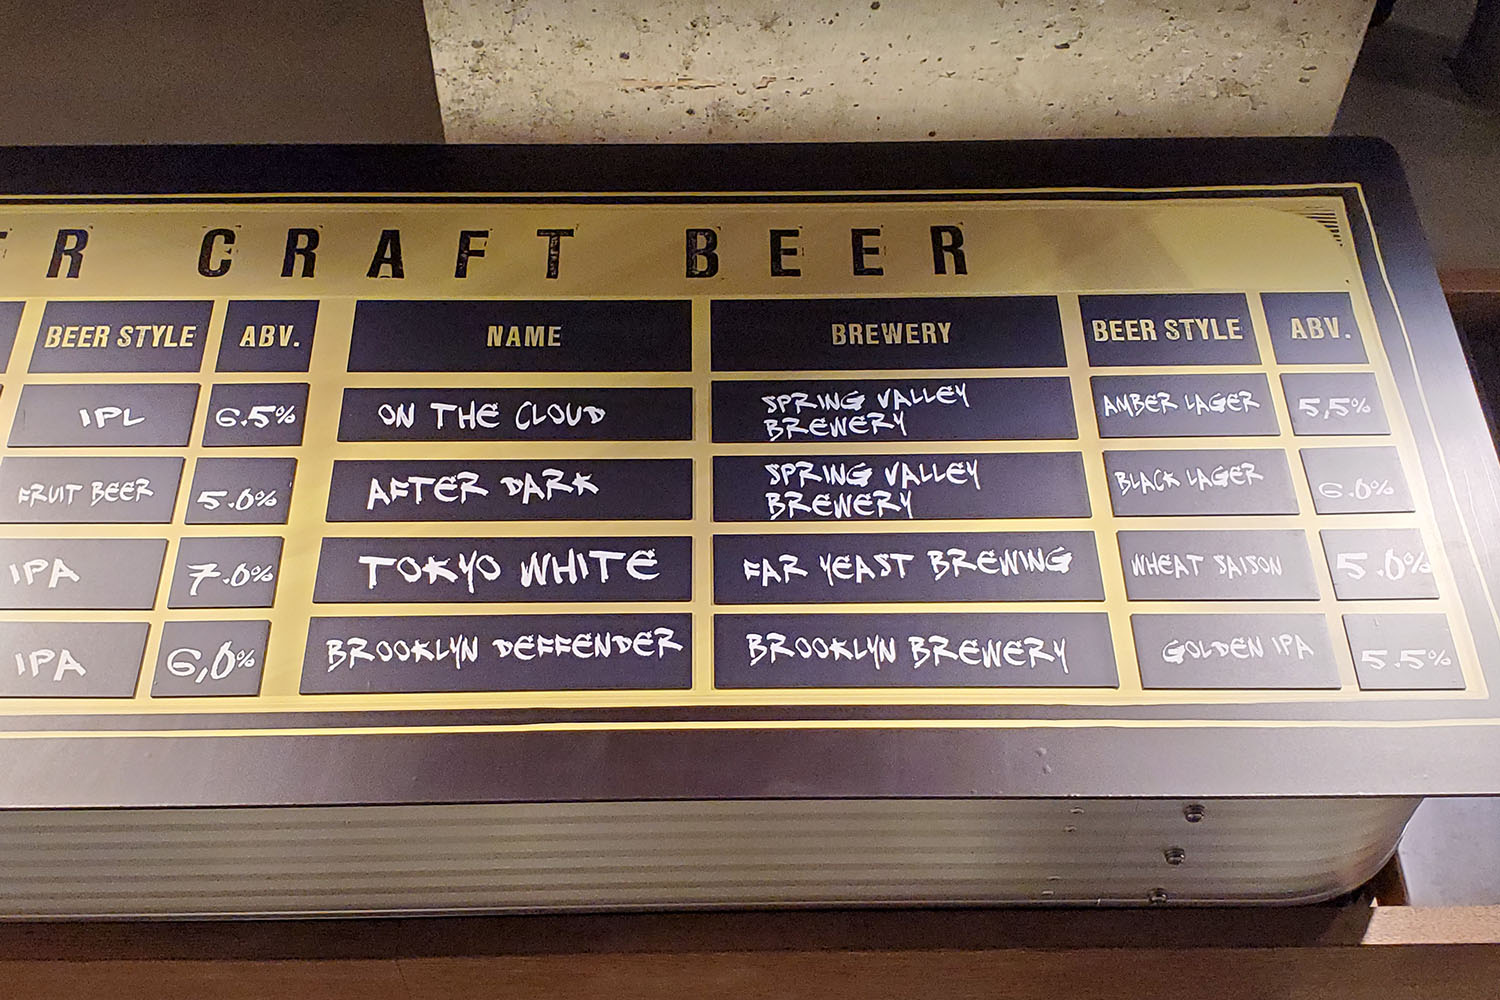 R CRAFT BEER
BEER STYLE ABV. NAME BREWERY BEER STYLE ABV.
IPL 6.5% ON THE CLOUD SPRING VALLEY BREWERY AMBER LAGER 5,5%
FRUIT BEER 5.0% AFTER DARK SPRING VALLEY BREWERY BLACK LAGER 6.0%
IPA 7.0% TOKYO WHITE FAR YEAST BREWING WHEAT SAISON 5.0%
IPA 6,0% BROOKLYN DEFFENDER BROOKLYN BREWERY GOLDEN IPA 5.5%